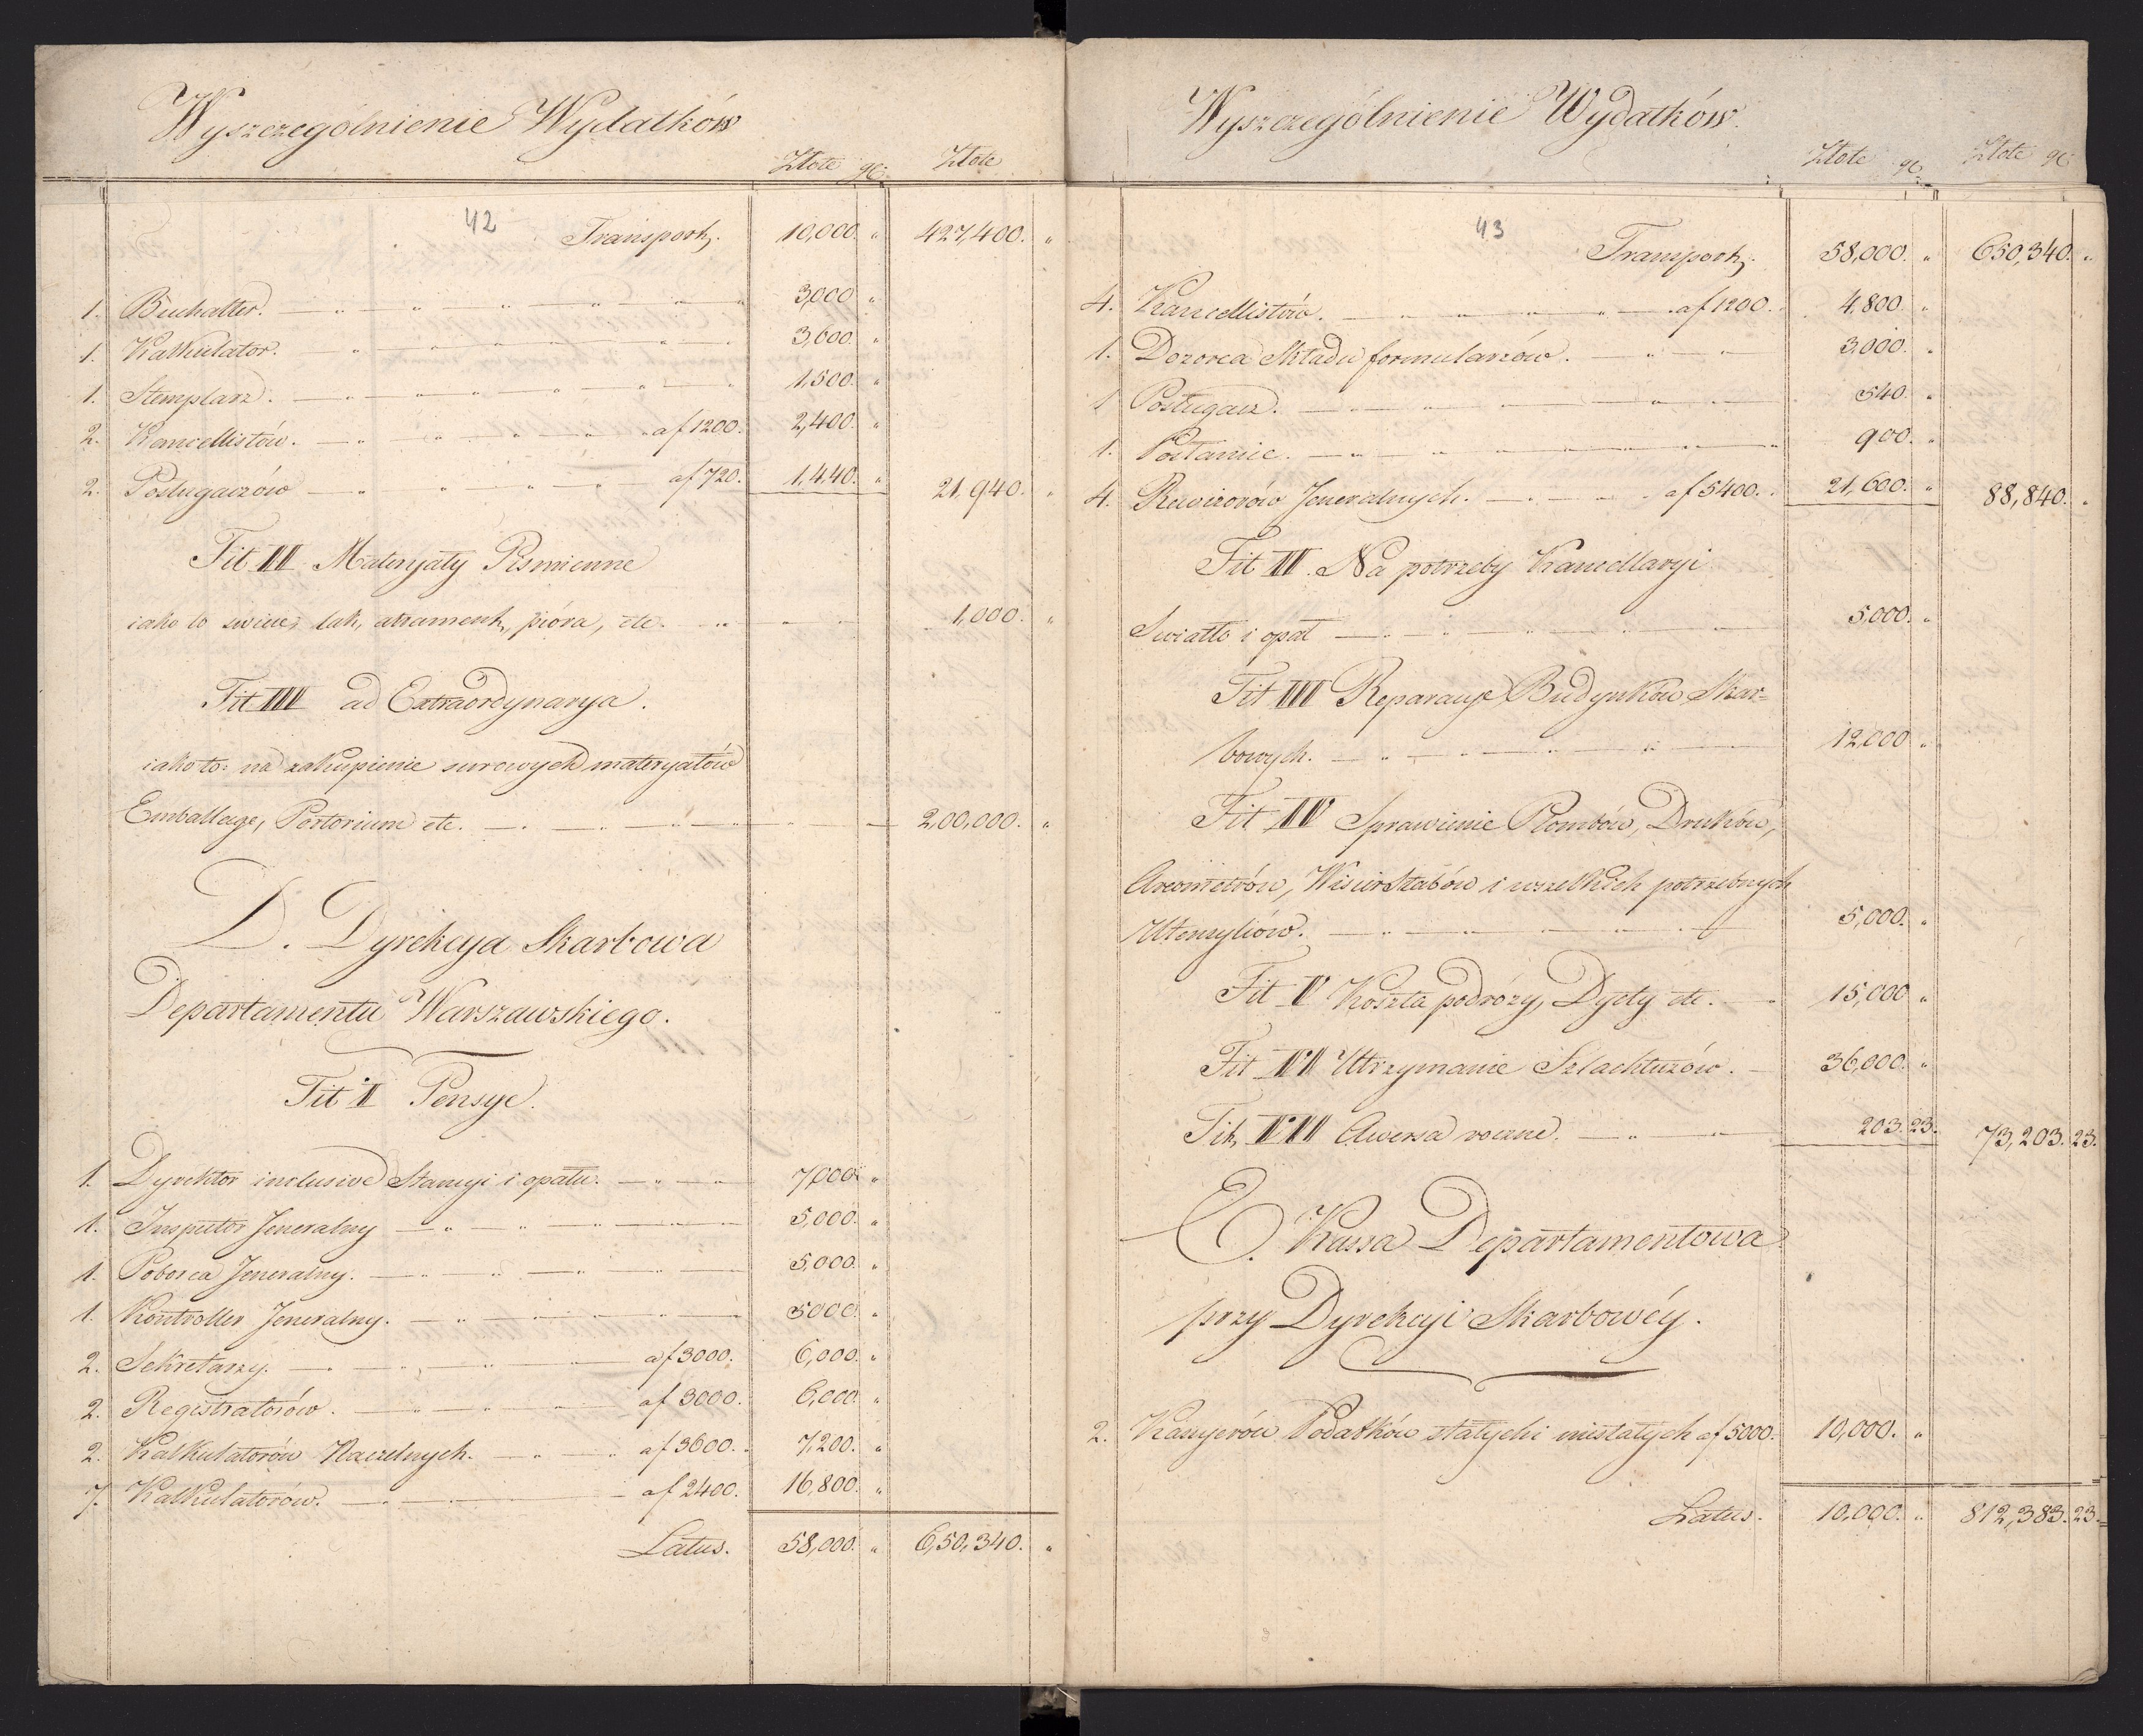 Wyszczególnienie Wydatków
Złote gr: Złote
42
Transport. 10,000. " 427,400. "
1. Buchalter. 3,000 "
1. Kalkulator. 3,600. "
1. Stemplarz. 1,500. "
2. Kancellistów. af 1200. 2,400. "
2. Posługaczów af 720. 1,440. " 21,940. "
Tit II Materyały Pismienne
iako to swiece, lak, atrament, pióra, etc. 1,000. "
Tit III ad Extraordynarya.
iako to: na zakupienie surowych materyałów
Emballage, Portorium etc. 2,00,000. "
D. Dyrekcya Skarbowa
Departamentu Warszawskiego.
Tit I Pensye.
1. Dyrektor inclusive Stancyi i opału. 7,000. "
1. Inspector Jeneralny 5,000. "
1. Poborca Jeneralny. 5,000. "
1. Kontroller Jeneralny. 5000. "
2. Sekretarzy. af 3000. 6,000. "
2. Registratorów. af 3000. 6,000. "
2. Kalkulatorów Naczelnych. af 3600. 7,200. "
7. Kalkulatorów. af 2400. 16,800. "
Latus. 58,000. " 6,50,340. "
Wyszczególnienie Wydatków.
Złote gr: Złote gr:
43
Transport. 58,000. " 650,340. "
4. Kancellistów. af 1200. 4,800. "
1. Dozorca Składu formularzów. 3,000. "
1 Posługacz. 540. "
1. Posłaniec. 900. "
4. Rewizorów Jeneralnych. af 5400. 21,600. " 88,840. "
Tit II. Na potrzeby Kancellaryi
Swiatło i opał 5,000. "
Tit III Reparacye Budynków Skar=
bowych. 12,000 "
Tit IV Sprawienie Plombów, Druków,
Areometrów, Wisirsztabów i wszelkich potrzebnych
Utensyliów. 5,000. "
Tit V Koszta podrozy, Dyety etc. 15,000 "
Tit VI Utrzymanie Szlachtuzów. 36,000. "
Tit. VII Awersa roczne. 203. 23. 73,203. 23.
E. Kassa Departamentowa
przy Dyrekcyi Skarbowéy.
2. Kassyerów Podatków stałych i niestałych af 5000. 10,000. "
Latus. 10,000. " 812,383. 23.